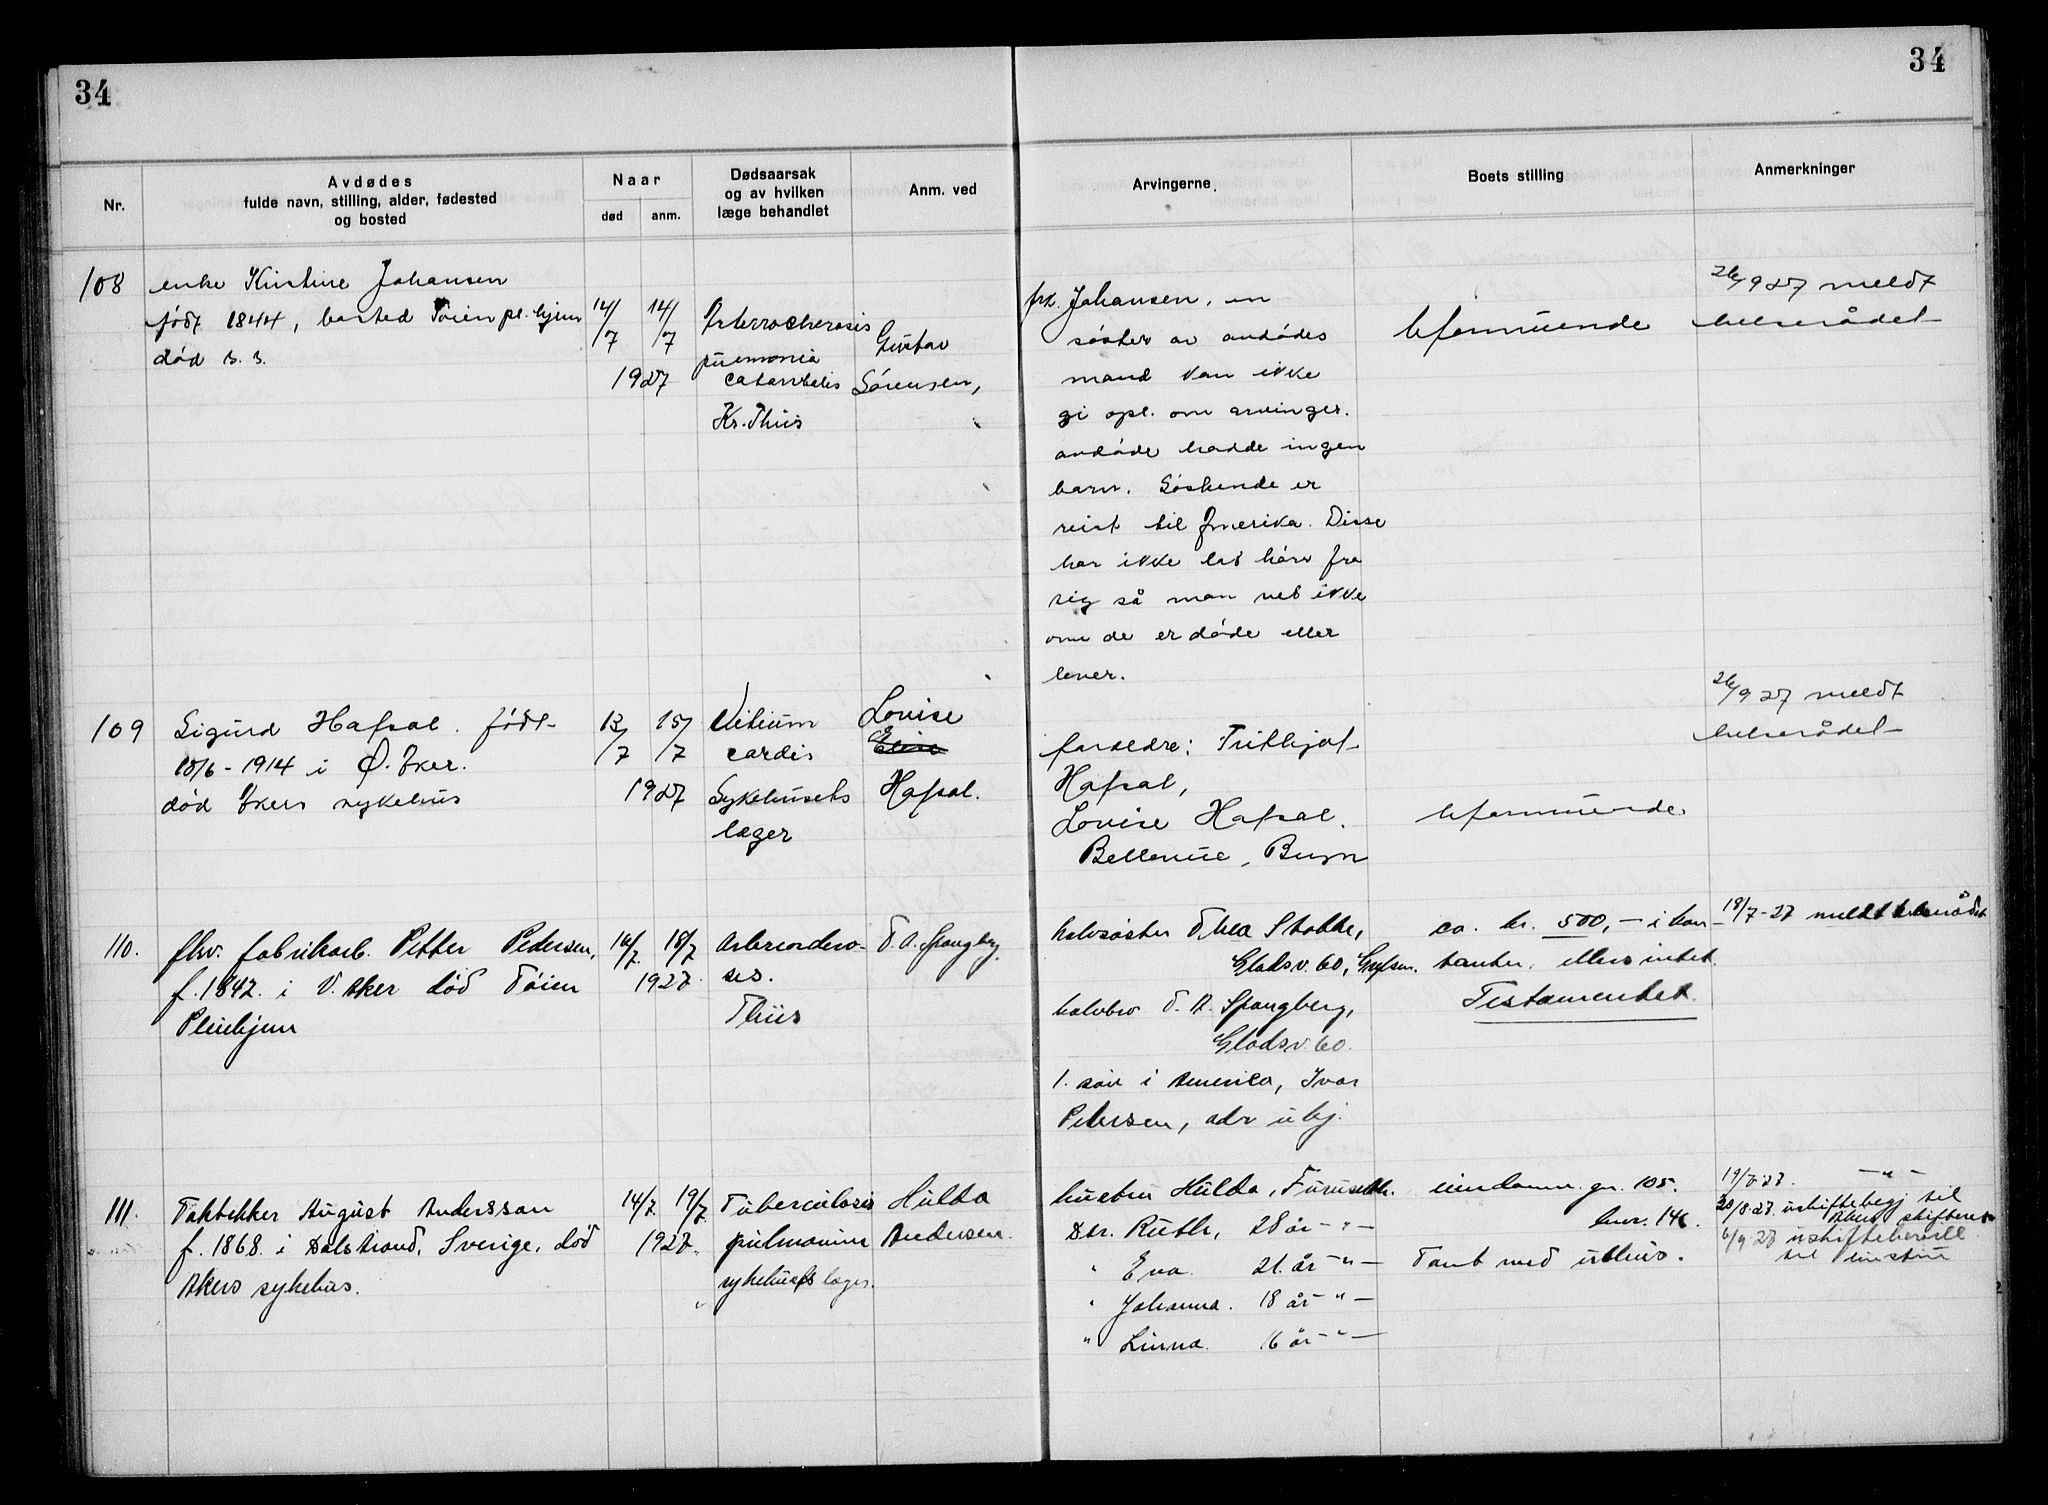 34
34
Nr.
Avdødes
fulde navn, stilling, alder, fødested
og bosted
Naar
død
anm.
Dødsaarsak
og av hvilken
læge behandlet
Anm. ved
Arvingerne
Boets stilling
Anmerkninger
108
enke Kristine Johansen
født 1844, bosted Tøien pl. hjem
død s. s.
14/7
14/7
1927
pnemonia
catarrhalis
Kr. Thiis
Gustav
Sørensen,
frk. Johansen, en
søster av avdødes
mand kan ikke
gi opl. om arvinger.
avdøde hadde ingen
barn. Søskende er
reist til Amerika. Disse
har ikke lat høre fra
sig så man vet ikke
om de er døde eller
lever.
uformuende
26/9 27 meldt
helserådet
109
Sigurd Hafsal. født
10/6 - 1914 i Ø. Aker.
død Akers sykehus
13/7
15/7
1927
Vitium
cordis
Sykehusets
læger
Lovise
Hafsal.
foreldre: Frithjof
Hafsal,
Lovise Hafsal.
Bellevue, Bryn
uformuende
26/9 27 meldt
helserådet
110.
fhv. fabrikarb. Petter Pedersen,
f. 1847. i V. Aker død Tøien
Pleiehjem
16/7
18/7
1927.
Arteriosclero-
ses.
Thiis
T. A. Spangberg.
halvsøster Thea Stokke,
Gladsv. 60, Grefsen.
halvbror T. A. Spangberg,
Gladsv. 60.
1. søn i Amerika, Ivar
Petersen, adr ubkj.
ca. kr. 500,- i kon-
tanter, ellers intet.
Testamentet
18/7-27 meldt helserådet
111.
Taktekker August Andersson
f. 1868. i Dalstrand, Sverige, død
Akers sykehus.
14/7.
19/7.
1927.
Tuberculosis
pulmonum
sykehusets læger.
Hulda
Andersen.
hustru Hulda, Furuseth.
Dtr. Ruth, 28 år - " -
" Eva. 21. år - " -
" Johanna. 18 år - " -
" Linna. 16 år - " -
eiendom. gr. 105.
bnr. 146.
Tomt med uthus.
19/7-27. - " -
30/8-27. uskiftebegj til
Akers skifterett
6/9-27 uskiftebevill.
til enken